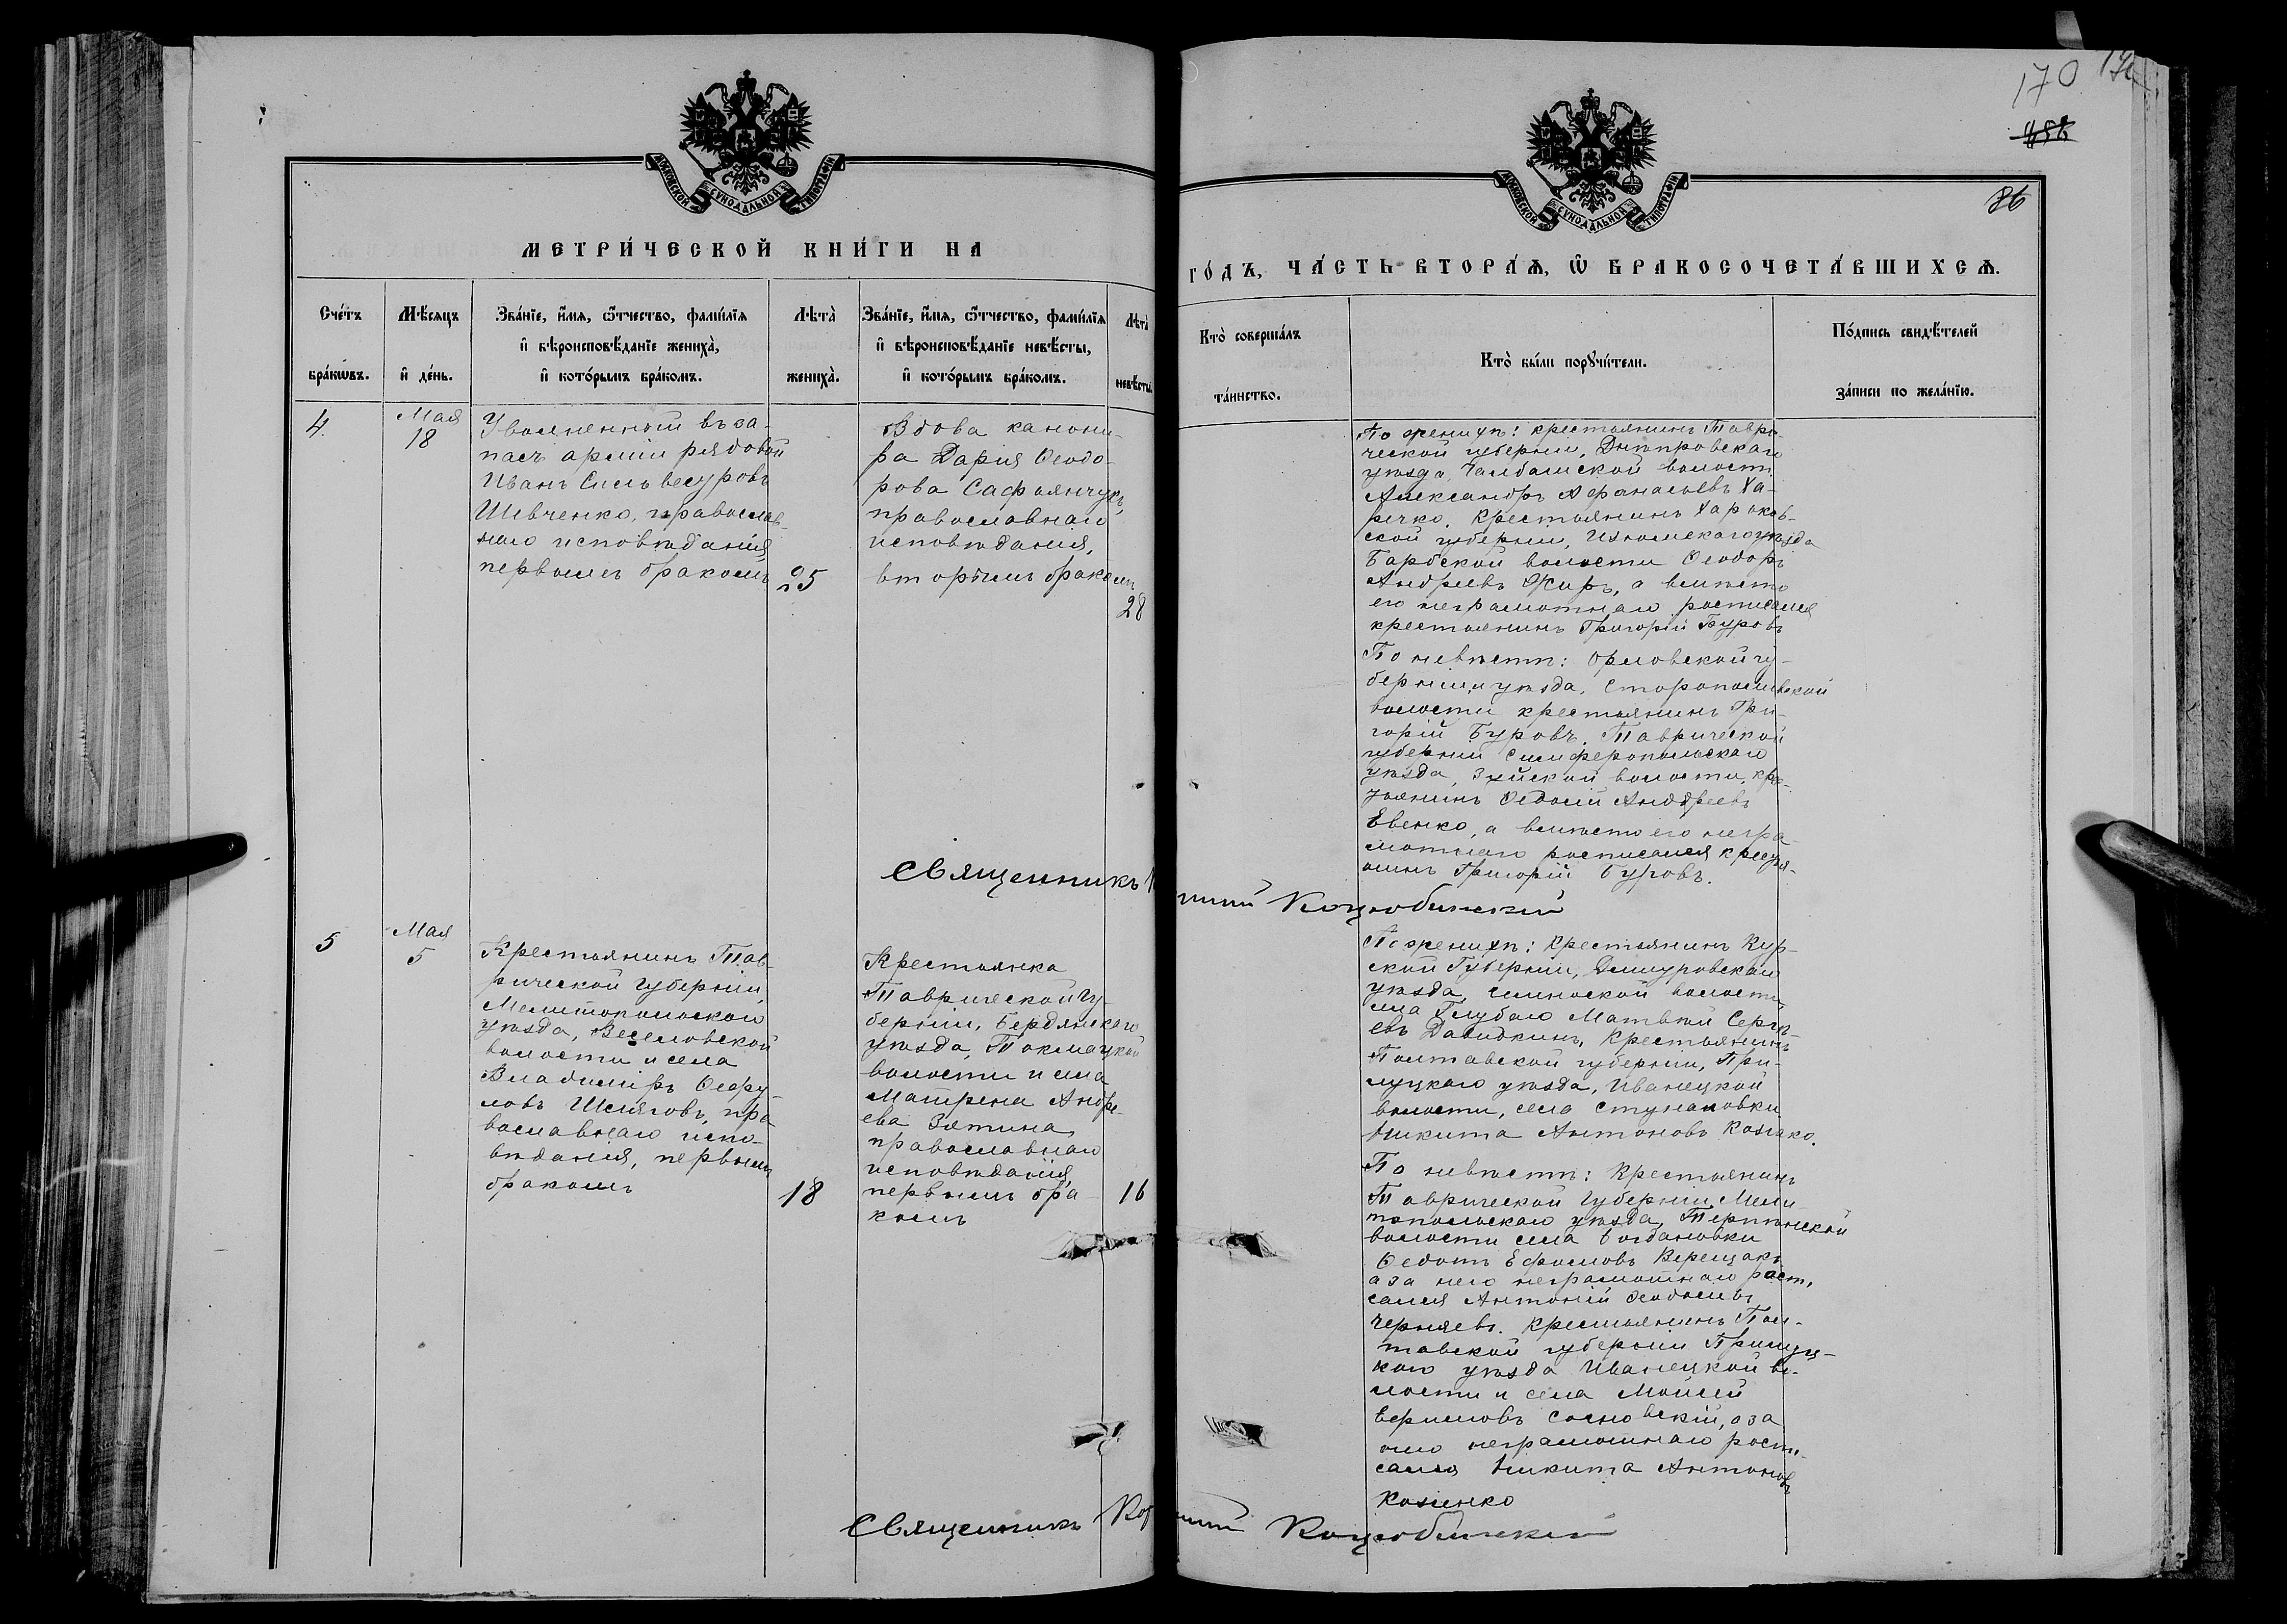 170
86
МОСКОВСКОЙ СѴНОДАЛЬНОЙ ТИПОГРАФІИ
МОСКОВСКОЙ СѴНОДАЛЬНОЙ ТИПОГРАФІИ
МЕТРИ́ЧЕСКОЙ КНИ́ГИ НА
ГО́ДЪ, ЧА́СТЬ ВТОРА́Ѧ, Ѡ҆ БРАКОСОЧЕТА́ВШИХСѦ.
Сче́тъ
бра́кѡвъ.
Мѣ́сяцъ
и҆ де́нь.
Зва́нїе, и҆́мя, ѻ҆́тчество, фами́лїя
и҆ вѣроисповѣ́данїе жениха̀,
и҆ кото́рымъ бра́комъ.
Лѣта̀
жениха̀.
Зва́нїе, и҆́мя, ѻ҆́тчество, фами́лїя
и҆ вѣроисповѣ́данїе невѣ́сты,
и҆ кото́рымъ бра́комъ.
Лѣта̀
невѣ́сты.
Кто̀ соверша́лъ
та́инство.
Кто̀ бы́ли порꙋчи́тели.
По́дпись свидѣ́телей
за́писи по жела́нїю.
4.
Мая
18
Уволенный въ за-
пасъ арміи рядовой
Иванъ Сильвестровъ
Шевченко, православ-
наго исповѣданія
первымъ бракомъ
25
Вдова канони-
ра Дарія Ѳеодо-
рова Сафьянчукъ,
православнаго
исповѣданія,
вторымъ бракомъ
28
По женихѣ: крестьянинъ Таври-
ческой губерніи, Днѣпровскаго
уѣзда, Чалбасской волости
Александръ Афанасьевъ Ха-
речко. Крестьянинъ Харьков-
ской губерніи, Изюмскаго уѣзда
Барвской волости Ѳеодоръ
Андреевъ Жиръ, а вмѣсто
его неграмотнаго росписался
крестьянинъ Григорій Буровъ
По невѣстѣ: Орловской гу-
берніи, уѣзда,
волости крестьянинъ Гри-
горій Буровъ. Таврической
губерніи Симферопольскаго
уѣзда, Зуйской волости, кре-
тьянинъ Ѳедосій Андреевъ
Евенко, а вмѣсто его негра-
мотнаго росписался крестья-
нинъ Григорій Буровъ.
Священникъ
Коцюбинскій
5
Мая
5
Крестьянинъ Тав-
рической губерніи,
Мелитопольскаго
уѣзда, Веселовской
волости и села
Владиміръ
православнаго испо-
вѣданія, первымъ
бракомъ
18
Крестьянка
Таврической гу-
берніи, Бердянскаго
уѣзда, Токмацкой
волости и села
Матрена Андре-
ева Зятина
православнаго
исповѣданія,
первымъ бра-
комъ
16
По женихѣ: Крестьянинъ Кур-
ской Губерніи, Дмитровскаго
уѣзда, волости
села Глубаго Матвѣй Сергѣ-
евъ Давидкинъ, Крестьянинъ
Полтавской губерніи, При-
луцкаго уѣзда, Иваницкой
волости, села Ступаковки
Никита Антоновъ
По невѣстѣ: Крестьянинъ
Таврической губерніи, Мели-
топольскаго уѣзда, Терпѣнской
волости села Богдановки
Ѳедотъ Верещакъ
а за него неграмотнаго роспи-
сался Антоній
Черняевъ. Крестьянинъ Пол-
тавской губерніи Прилуц-
каго уѣзда Иваницкой во-
лости и села Мойсей
Сосновскій, а за
него неграмотнаго роспи-
сался Никита Антоновъ
Козенко
Священникъ Кор
Коцюбинскій